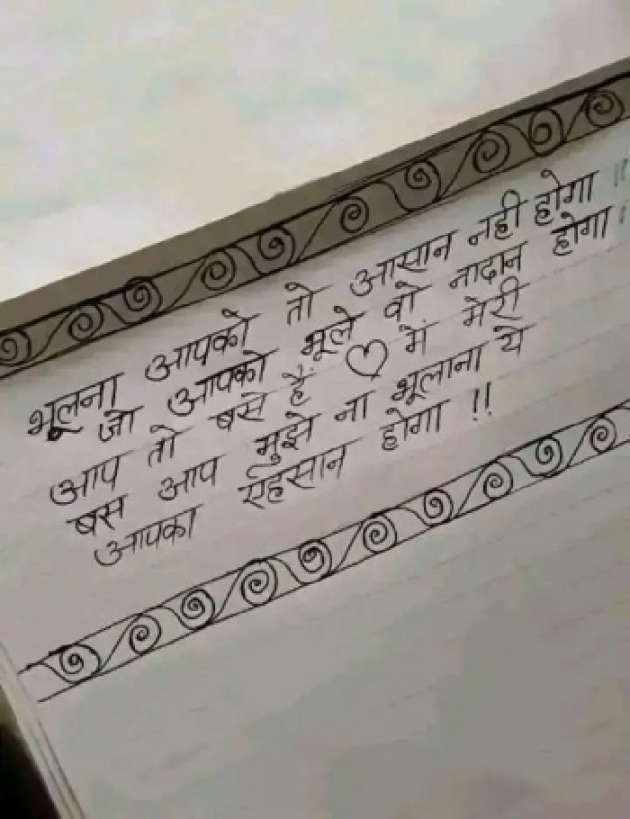 भूलना आपको तो आसान नही होगा !!
जो आपको भूले वो नादान होगा !
आप तो बसे हैं ♡ में मेरी
बस आप मुझे ना भूलाना ये
आपका एहसान होगा !!